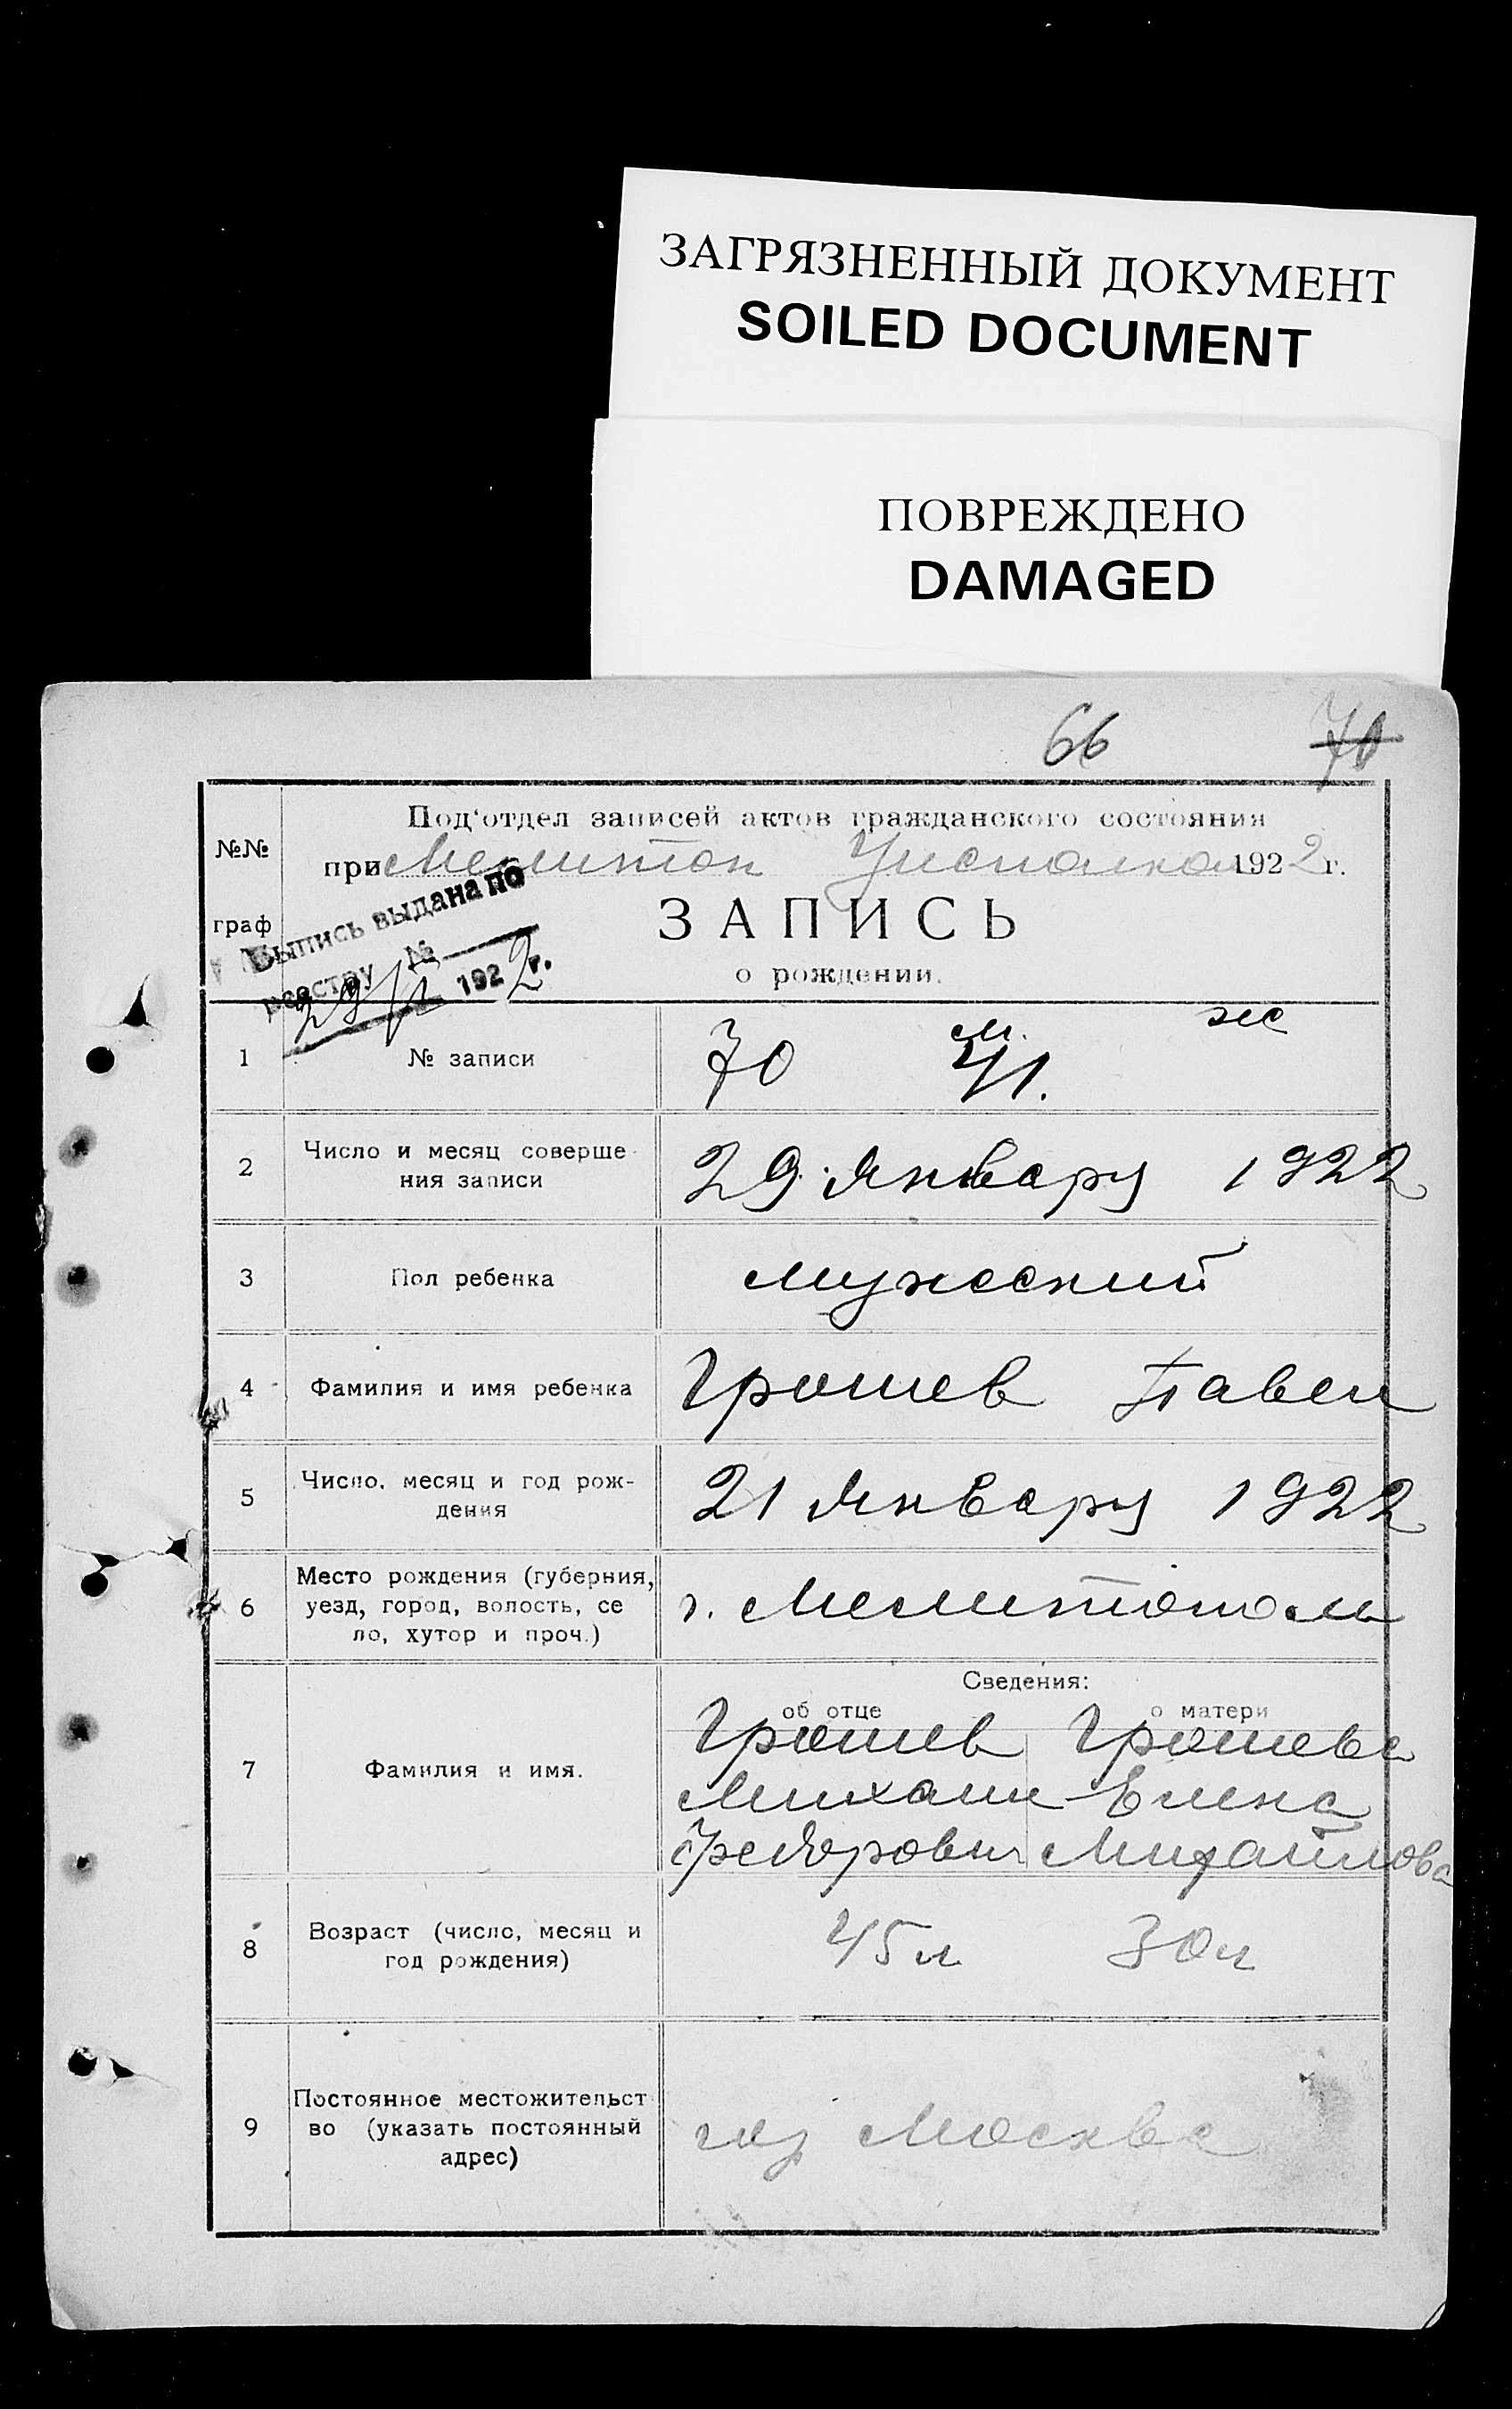 ЗАГРЯЗНЕННЫЙ ДОКУМЕНТ
SOILED DOCUMENT
ПОВРЕЖДЕНО
DAMAGED
66 70
№№
граф
Под'отдел записей актов гражданского состояния
при Мелитоп Уисполкоме 1922 г.
Выпись выдана по
реестру №
29/I 1922 г.
ЗАПИСЬ
о рождении.
1 № записи 70 м. 41. ж
2 Число и месяц соверше-
ния записи 29 Январy 1922
3 Пол ребенка мужеский
4 Фамилия и имя ребенка Грошев Павел
5 Число, месяц и год рож-
дения 21 Январy 1922
6 Место рождения (губерния,
уезд, город, волость, се
ло, хутор и проч.) г. Мелитополь
Сведения:
об отце о матери
7 Фамилия и имя.
Грошев Грошева
Михаил Елена
Федорович Михайлова
8 Возраст (число, месяц и
год рождения) 45 л 30 л
9 Постоянное местожительст
во (указать постоянный
адрес) Москва